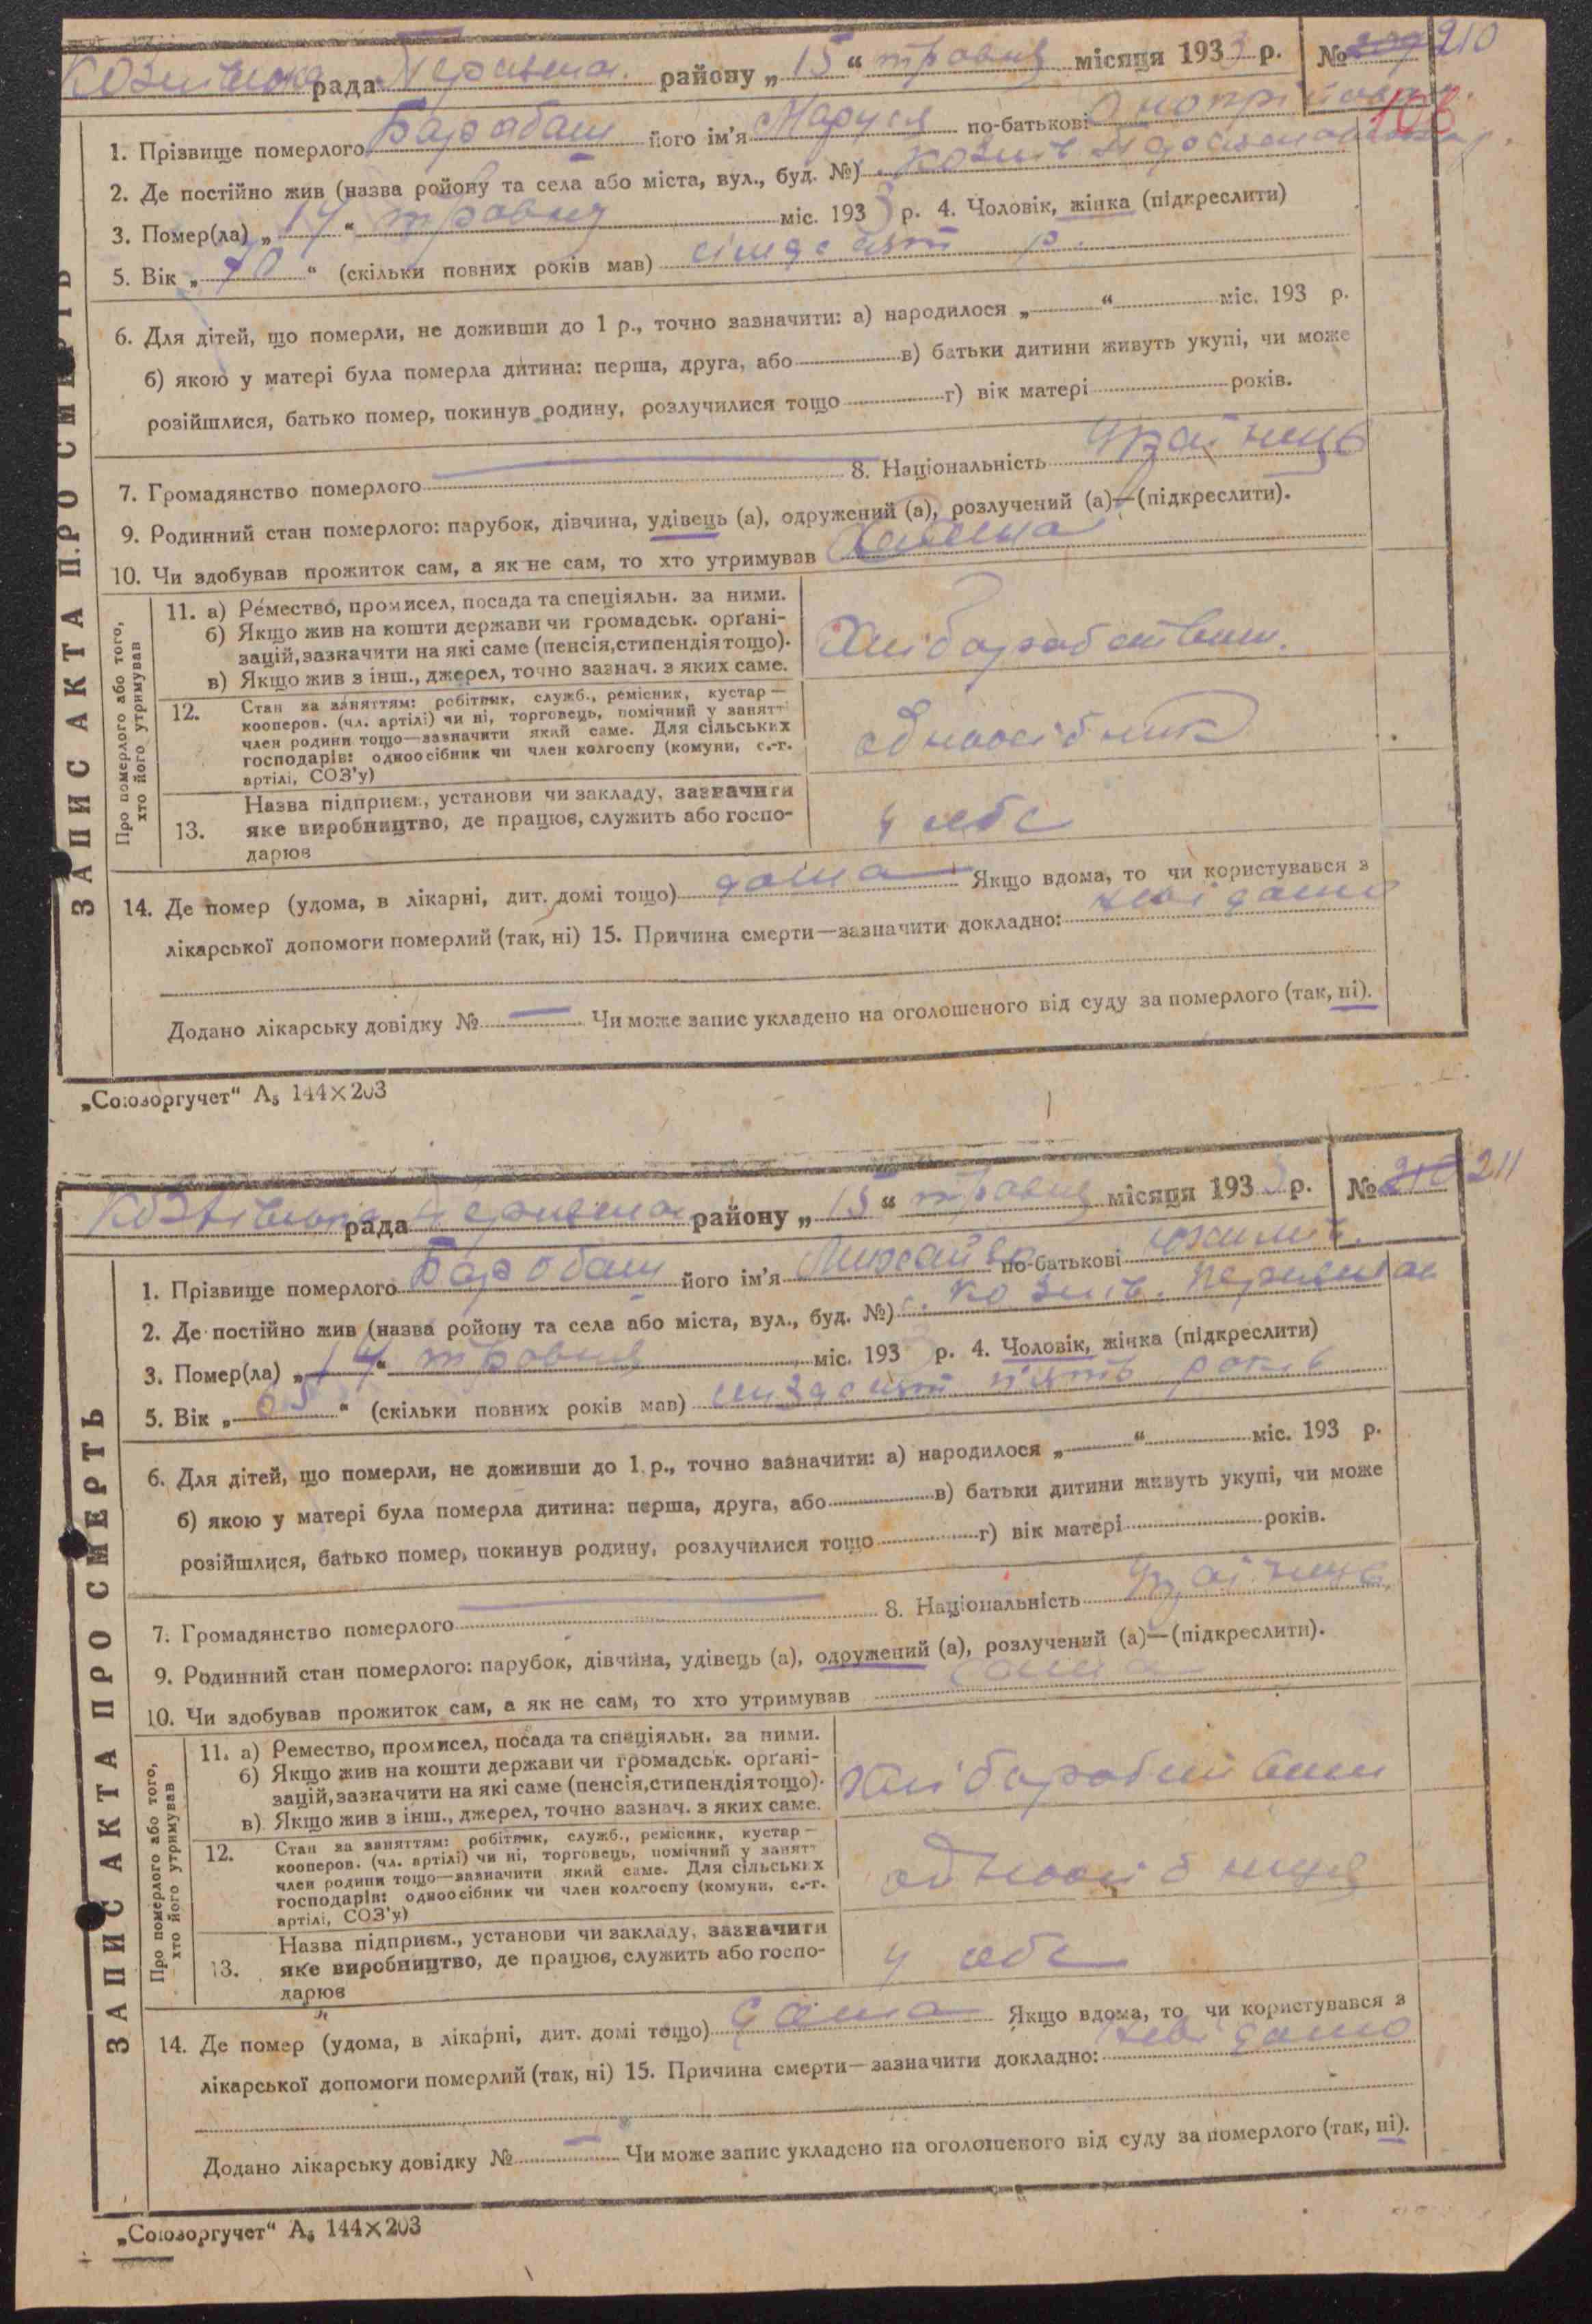 рада району „ 15 “ травня місяця 1933 р. № 210
1. Прізвище померлого Барабаш його ім'я Маруся по-батькові
2. Де постійно жив (назва ройону та села або міста, вул., буд. №)
3. Помер(ла) „ 14 “ травня міс. 193 р. 4. Чоловік, жінка (підкреслити)
5. Вік „ 70 “ (скільки повних років мав) сімдесят р.
6. Для дітей, що померли, не доживши до 1 р., точно зазначити: а) народилося „ “ міс. 193 р.
б) якою у матері була померла дитина: перша, друга, або в) батьки дитини живуть укупі, чи може
розійшлися, батько помер, покинув родину, розлучилися тощо г) вік матері років.
7. Громадянство померлого 8. Національність
9. Родинний стан померлого: парубок, дівчина, удівець (а), одружений (а), розлучений (а)—(підкреслити).
10. Чи здобував прожиток сам, а як не сам, то хто утримував
ЗАПИС АКТА ПРО СМЕРТЬ
Про померлого або того,
хто його утримував
11. а) Ремество, промисел, посада та спеціяльн. за ними.
б) Якщо жив на кошти держави чи громадськ. орґані-
зацій, зазначити на які саме (пенсія, стипендія тощо).
в) Якщо жив з інш., джерел, точно зазнач. з яких саме.
12. Стан за заняттям: робітник, служб., ремісник, кустар —
кооперов. (чл. артілі) чи ні, торговець, помічний у занятт
член родини тощо—зазначити який саме. Для сільських
господарів: одноосібник чи член колгоспу (комуни, с.-г.
артілі, СОЗ'у)
одноосібник
13. Назва підприєм., установи чи закладу, зазначити
яке виробництво, де працює, служить або госпо-
дарює
у себе
14. Де помер (удома, в лікарні, дит. домі тощо) дома Якщо вдома, то чи користувався з
лікарської допомоги померлий (так, ні) 15. Причина смерти—зазначити докладно: невідомо
Додано лікарську довідку № — Чи може запис укладено на оголошеного від суду за померлого (так, ні).
„Союзоргучет“ А₅ 144×203
рада району „ 15 “ травня місяця 1933 р. № 211
1. Прізвище померлого Барабаш його ім'я Михайло по-батькові
2. Де постійно жив (назва ройону та села або міста, вул., буд. №)
3. Помер(ла) „ 14 “ травня міс. 193 р. 4. Чоловік, жінка (підкреслити)
5. Вік „ 65 “ (скільки повних років мав) шиздесят пять років
6. Для дітей, що померли, не доживши до 1 р., точно зазначити: а) народилося „ “ міс. 193 р.
б) якою у матері була померла дитина: перша, друга, або в) батьки дитини живуть укупі, чи може
розійшлися, батько помер, покинув родину, розлучилися тощо г) вік матері років.
7. Громадянство померлого 8. Національність
9. Родинний стан померлого: парубок, дівчина, удівець (а), одружений (а), розлучений (а)—(підкреслити).
10. Чи здобував прожиток сам, а як не сам, то хто утримував
ЗАПИС АКТА ПРО СМЕРТЬ
Про померлого або того,
хто його утримував
11. а) Ремество, промисел, посада та спеціяльн. за ними.
б) Якщо жив на кошти держави чи громадськ. орґані-
зацій, зазначити на які саме (пенсія, стипендія тощо).
в) Якщо жив з інш., джерел, точно зазнач. з яких саме.
12. Стан за заняттям: робітник, служб., ремісник, кустар —
кооперов. (чл. артілі) чи ні, торговець, помічний у занятт
член родини тощо—зазначити який саме. Для сільських
господарів: одноосібник чи член колгоспу (комуни, с.-г.
артілі, СОЗ'у)
13. Назва підприєм., установи чи закладу, зазначити
яке виробництво, де працює, служить або госпо-
дарює
у себе
14. Де помер (удома, в лікарні, дит. домі тощо) дома Якщо вдома, то чи користувався з
лікарської допомоги померлий (так, ні) 15. Причина смерти—зазначити докладно: невідомо
Додано лікарську довідку № — Чи може запис укладено на оголошеного від суду за померлого (так, ні).
„Союзоргучет“ А₅ 144×203